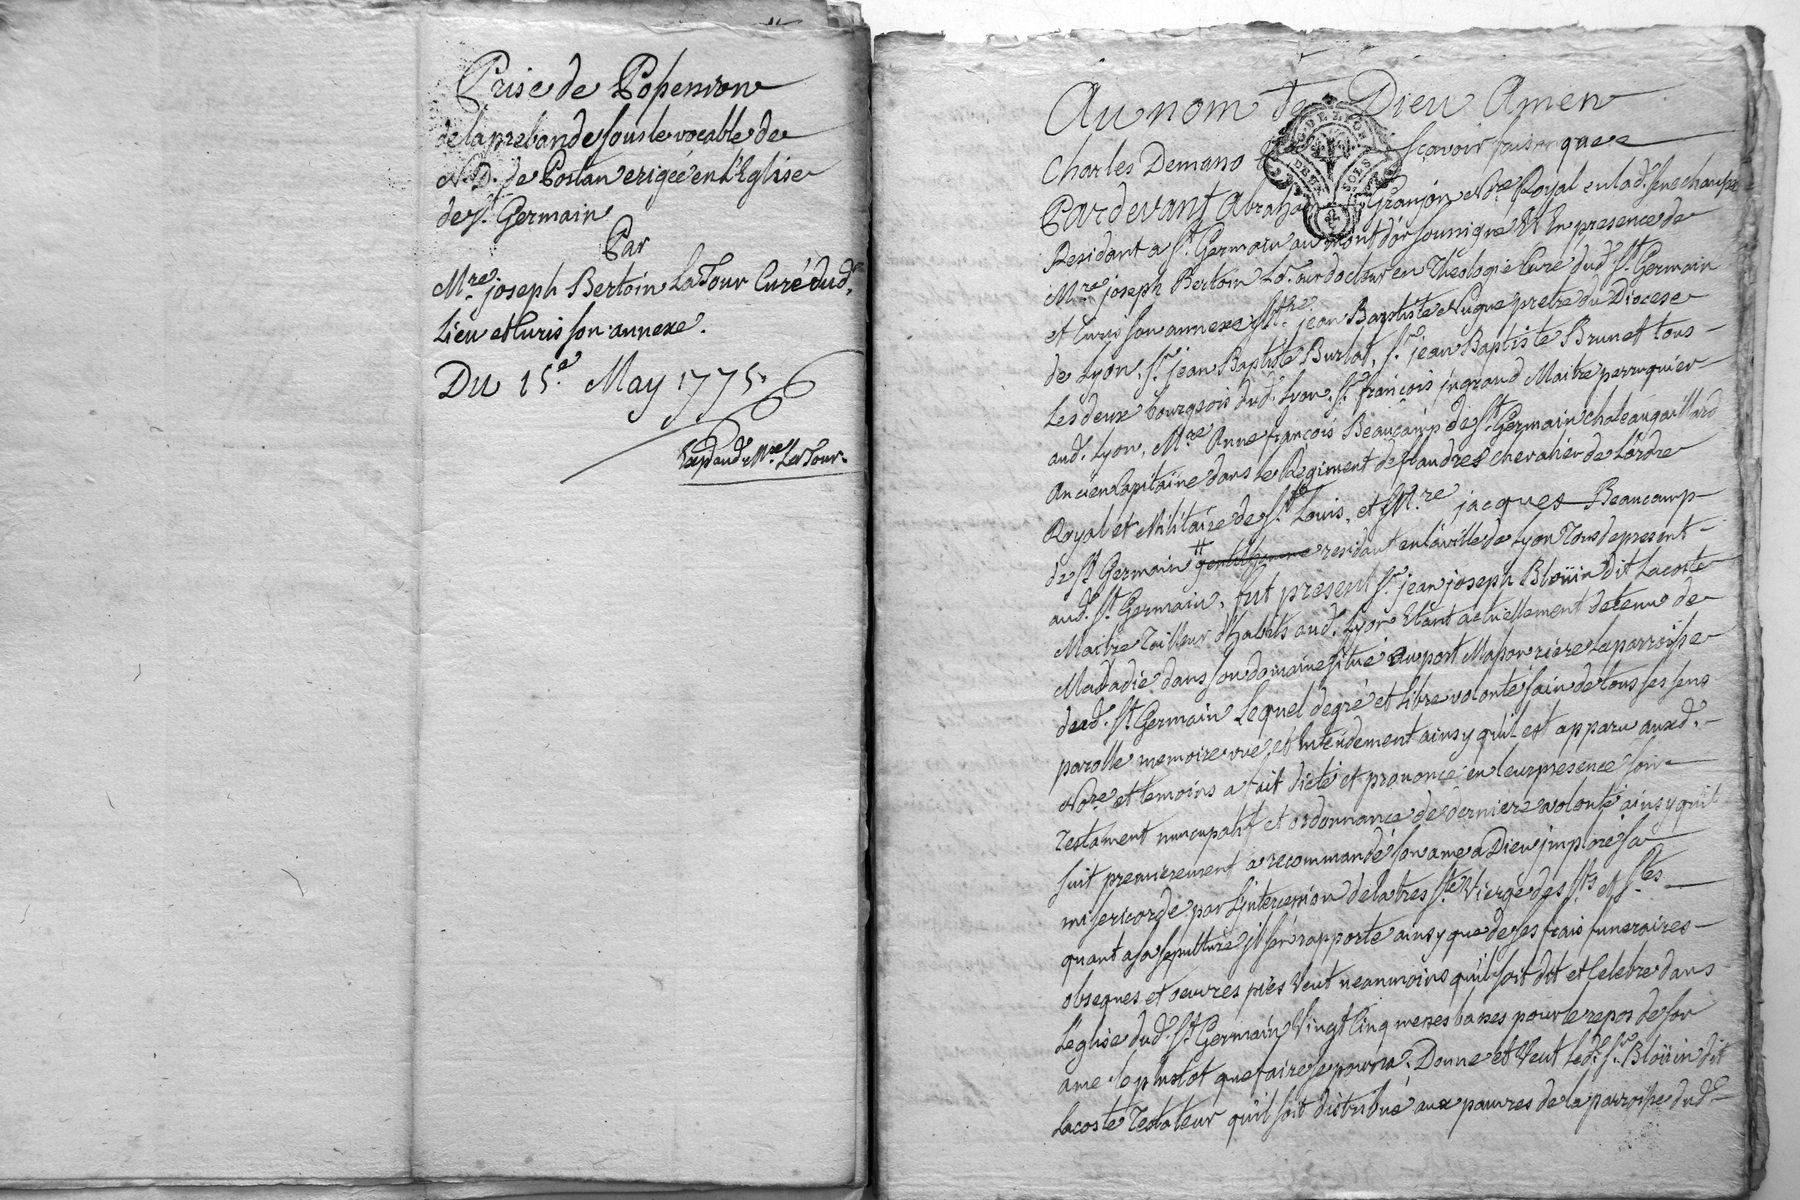 Prise de Possession
de la prebande sous le vocable de
N. D. de erigée en L'Eglise
de St. Germain
Par
Mre. joseph Bertoin LaTour Curé dud.
Lieu et Curis son annexe.
Du 15e. May 1775.
Exp aud Mre LaTour.
Au nom de Dieu Amen
Charles Demano sçavoir faisons que
Pardevant Abraham Granjon Nre Royal en lad. senechaussée
Residant a St. Germain au mont d'or soussigné Et En presence de
Mre joseph Bertoin LaTour docteur en Theologie Curé dud. St. Germain
et Curis son annexe, Mre. jean Baptiste Nuque pretre du Diocese
de Lyon, Sr. jean Baptiste Burlat, Sr. jean Baptiste Brunet tous
Les deux bourgeois dud. Lyon, Sr. françois jngrand Maitre perruquier
aud. Lyon, Mre Anne françois Beaucamp de St. Germain chateaugaillard
Ancien Capitaine dans Le Regiment de flandres chevalier de L'ordre
Royal et Militaire de St. Louis, et Mre jacques Beaucamp
de St Germain gentilhomme residant en la ville de Lyon Tous de present
aud. St. Germain, fut present Sr. jean joseph Bloüin dit Lacoste
Maitre Tailleur d'habits aud. Lyon Etant actuellement detenu de
Maladie dans son domaine situé au port Masson riere La parroisse
dud. St. Germain Lequel de gré et libre volonté sain de tous ses sens
parolle memoire vue et Entendement ainsy qu'il est apparu auxd.
Nore et temoins a fait dicté et prononcé en leur presence son
Testament nuncupatif et ordonnance de derniere volonté ainsy qu'il
suit premierement a recommandé son ame a Dieu jmploré sa
misericorde par L'jntercession de la tres Ste Vierge des Sts et Stes
quant a sa sepulture il s'en rapporte ainsy que de ses frais funeraires
obseques et oeuvres pies Veut neanmoins qu'il soit dit et Celebré dans
L'eglise dud. St. Germain Vingt Cinq messes basses pour le repos de son
ame le plustot que faire se pourra. Donne et Veut led. Sr. Bloüin dit
Lacoste Testateur qu'il soit distribué aux pauvres de la parroisse dud.